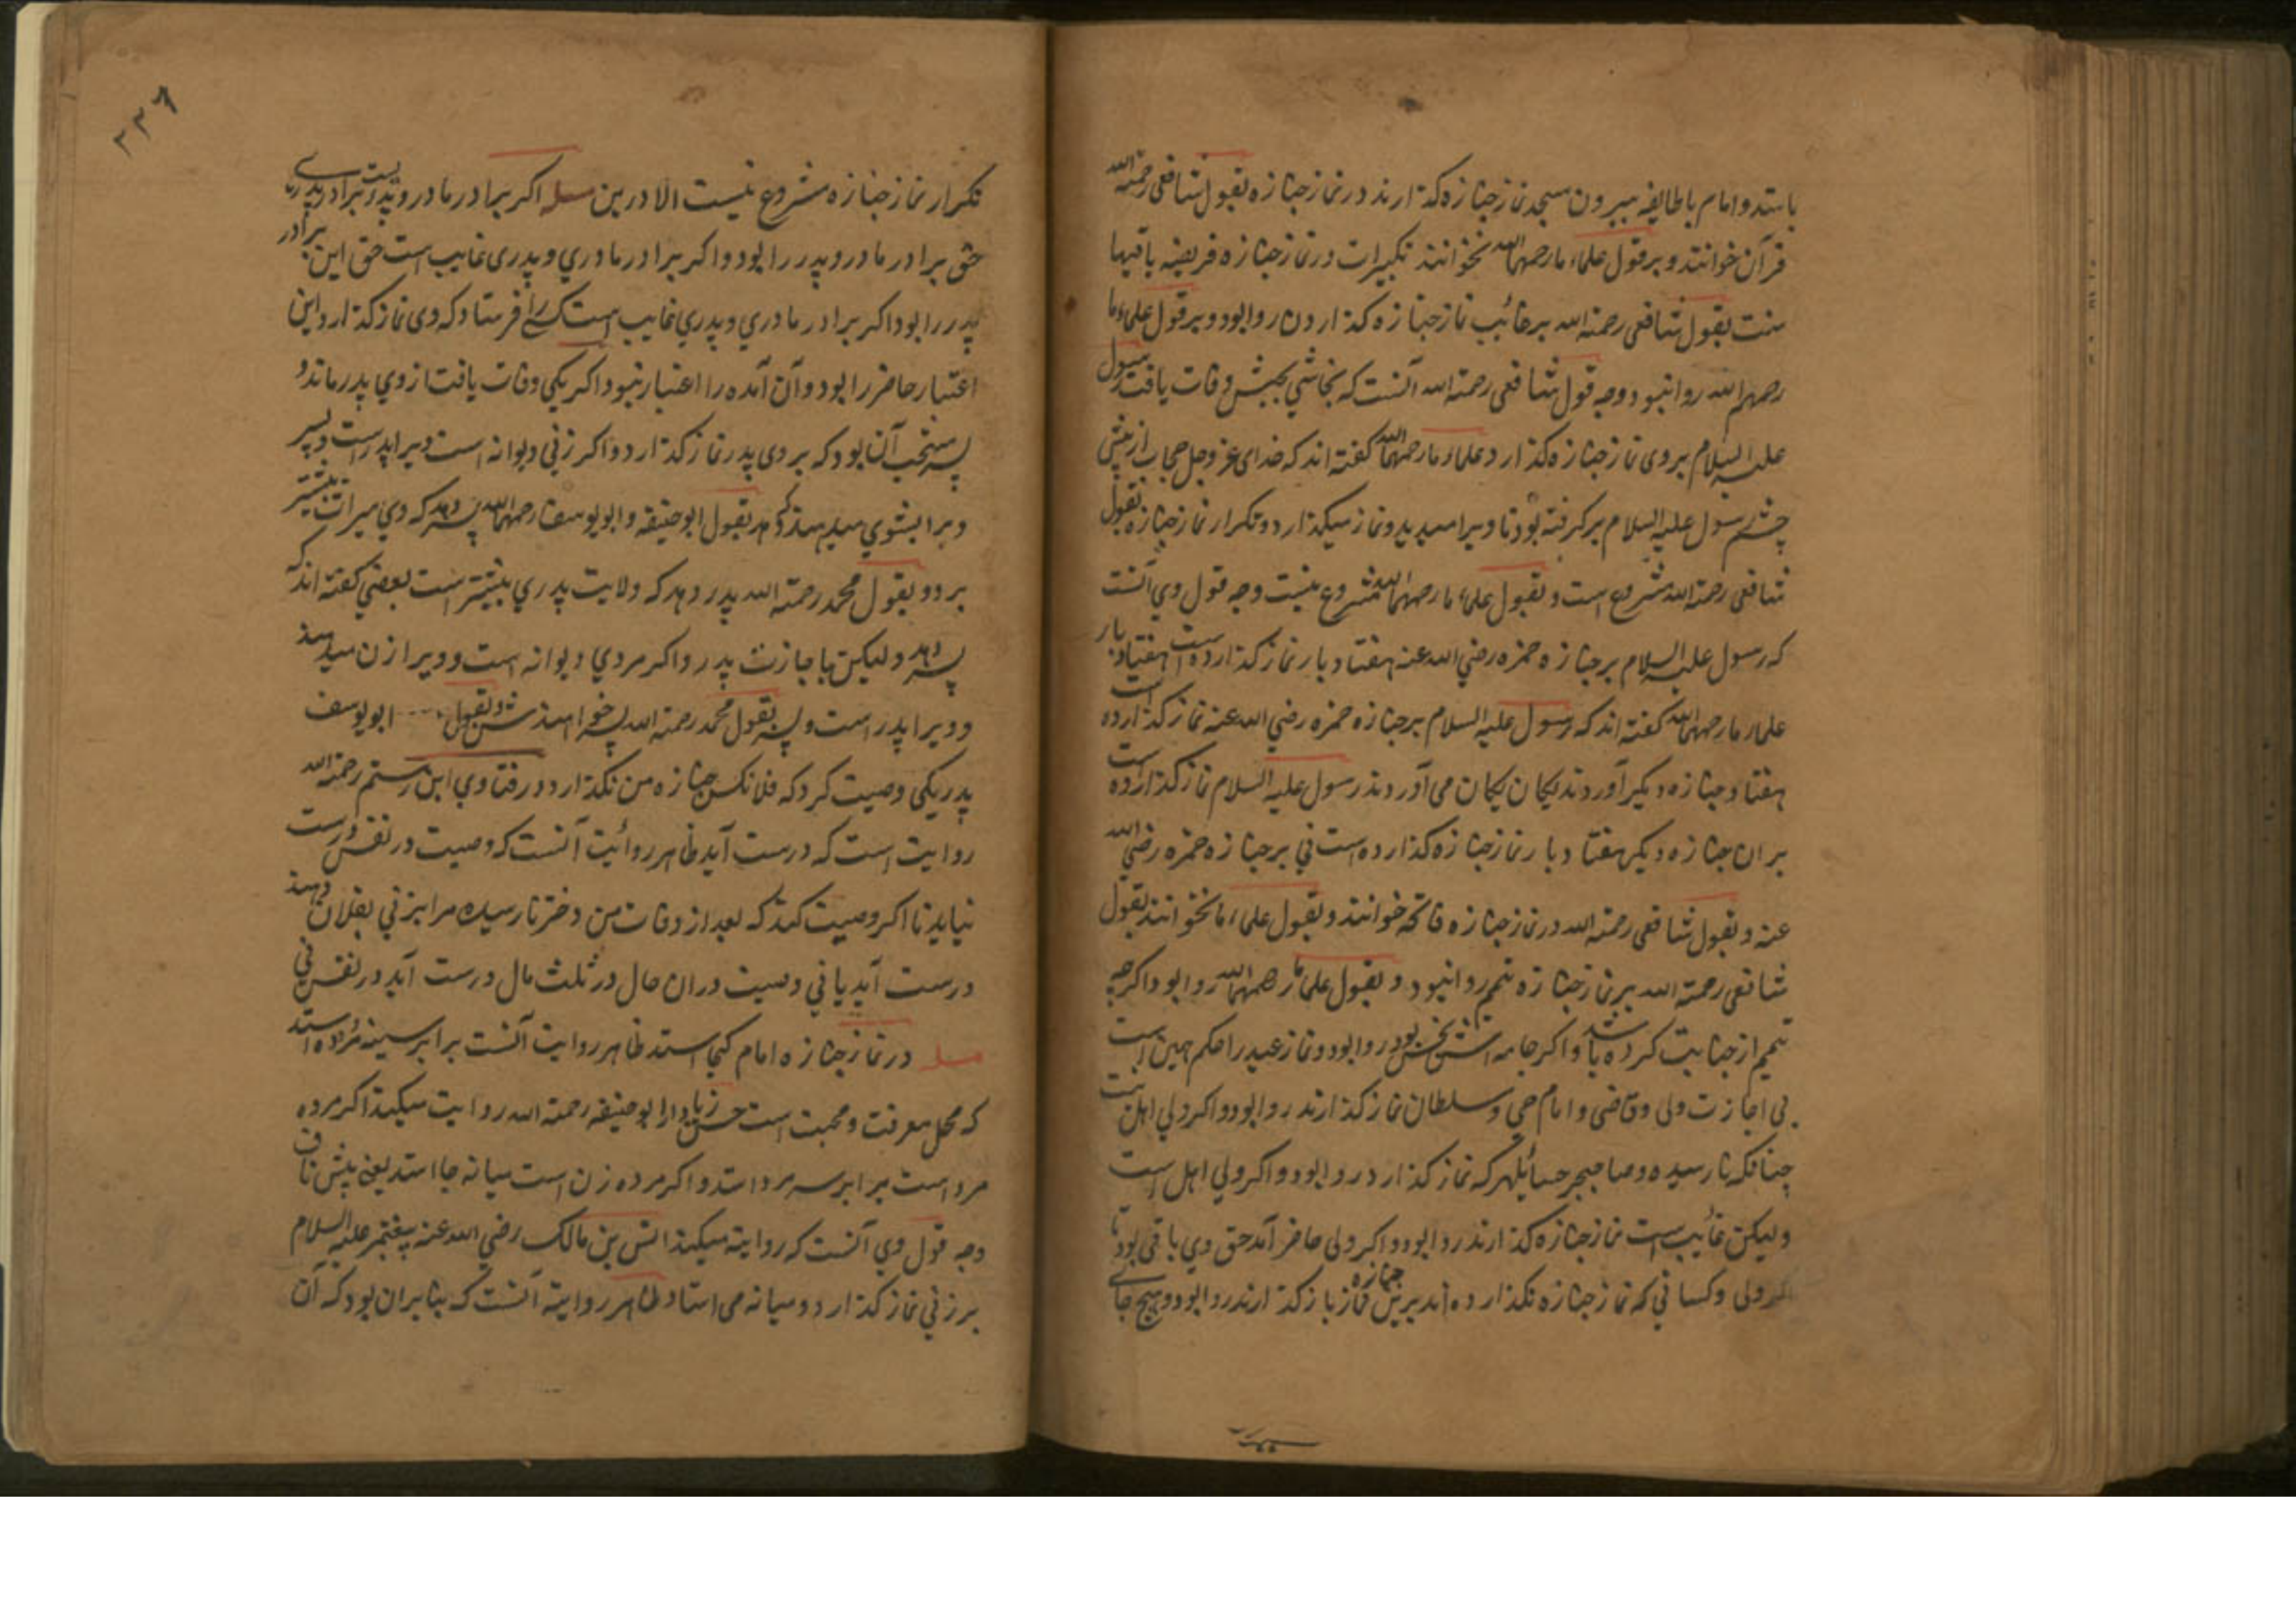 باستد و امام با طایفه بیرون مسجد نماز جنازه کذارند در نماز جنازه بقول شافعی رحمة الله
قرآن خوانند و بر قول علماء ما رحمهم الله نخوانند تکبیرات در نماز جنازه فریضه باقیها
سنت بقول شافعی رحمة الله بر غائب نماز جنازه کذاردن روا بود و بر قول علماء ما
رحمهم الله روا نبود وجه قول شافعی رحمة الله آنست که نجاشی بحبش وفات یافت رسول
علیه السلام بر وی نماز جنازه کذارد علماء ما رحمهم الله کفته اند که خدای عز وجل حجاب از پیش
چشم رسول علیه السلام بر کرفته بود تا ویرا میدید و نماز میکذارد و تکرار نماز جنازه بقول
شافعی رحمة الله مشروع است و بقول علماء ما رحمهم الله مشروع نیست وجه قول وی آنست
که رسول علیه السلام بر جنازه حمزه رضی الله عنه هفتاد بار نماز کذارده است هفتاد بار
علماء ما رحمهم الله کفته اند که رسول علیه السلام بر جنازه حمزه رضی الله عنه نماز کذارده است
هفتاد جنازه دیکر آوردند یکان یکان می آوردند رسول علیه السلام نماز کذارده است
بران جنازه دیکر هفتاد بار نماز جنازه کذارده است نی بر جنازه حمزه رضی الله
عنه و بقول شافعی رحمة الله در نماز جنازه فاتحه خوانند و بقول علماء ما نخوانند بقول
شافعی رحمة الله بر نماز جنازه تیمم روا نبود و بقول علماء ما رحمهم الله روا بود اکرچه
تیمم از جنابت کرده باشد و اکر جامه اش نجس بود روا بود و نماز عید را حکم همین است
بی اجازت ولی و قاضی و امام حی و سلطان نماز کذارند روا بود و اکر ولی اهل نیست
چنانکه نارسیده و صاحب هر که نماز کذارد روا بود و اکر ولی اهل است
ولیکن غائب است نماز جنازه کذارند روا بود و اکر ولی حاضر آمد حق وی باقی بود تا
ولی و کسانی که نماز جنازه نکذارده اند برین جنازه نماز باز کذارند روا بود و هیچ جای
۳۳۹
تکرار نماز جنازه مشروع نیست الا درین مسله اکر برادر مادر و پدر است و برادر پدری
حق برادر مادر و پدر را بود و اکر برادر مادری و پدری غایب است حق این برادر
پدر را بود اکر برادر مادری و پدری غایب است کسی را فرستاد که وی نماز کذارد این
اعتبار حاضر را بود و آن آمده را اعتبار نبود اکر یکی وفات یافت از وی پدر ماند و
پسر مستحب آن بود که بر وی پدر نماز کذارد و اکر زنی دیوانه است ویرا پدر است و پسر
ویرا بشوی میدهند که دهد بقول ابو حنیفه و ابو یوسف رحمهما الله پسر دهد که وی میراث بیشتر
برد و بقول محمد رحمة الله پدر دهد که ولایت پدری بیشتر است بعضی کفته اند که
پسر دهد ولیکن با جازت پدر و اکر مردی دیوانه است و ویرا زن میدهند
و ویرا پدر است و پسر بقول محمد رحمة الله پسر خواهندش و بقول ابو یوسف
پدر یکی وصیت کرد که فلانکس جنازه من نکذارد و در فتاوی ابن رستم رحمة الله
روایت است که درست آید ظاهر روایت آنست که وصیت در نفس درست
نیاید تا اکر وصیت کند که بعد از وفات من دختر نارسیده مرا بزنی بفلان دهند
درست آید یا نی وصیت دران حال در ثلث مال درست آید در نفس نی
مسله در نماز جنازه امام کجا استد ظاهر روایت آنست برابر سینه مرده استد
که محل معرفت و محبت است حسن زیاد از ابو حنیفه رحمة الله روایت میکند اکر مرده
مرد است برابر سر مرد استد و اکر مرده زن است میانه جا استد یعنی پیش ناف
وجه قول وی آنست که روایة میکند انس بن مالک رضی الله عنه پیغمبر علیه السلام
بر زنی نماز کذارد و میانه می استاد ظاهر روایة آنست که بنا بران بود که آن